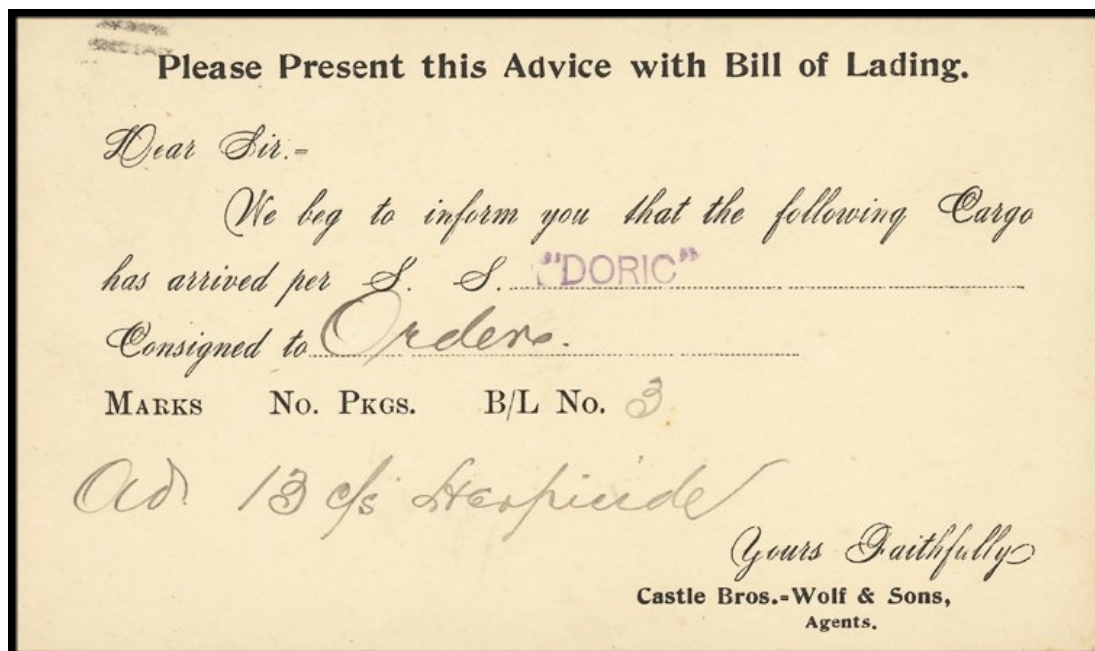 Please Present this Advice with Bill of Lading.
Dear Sir.=
We beg to inform you that the following Cargo
has arrived per S. S. "DORIC"
Consigned to Orders.
MARKS No. PKGS. B/L No. 3
Ad. 13 c/s Herpicide
Yours Faithfully
Castle Bros.=Wolf & Sons,
Agents.